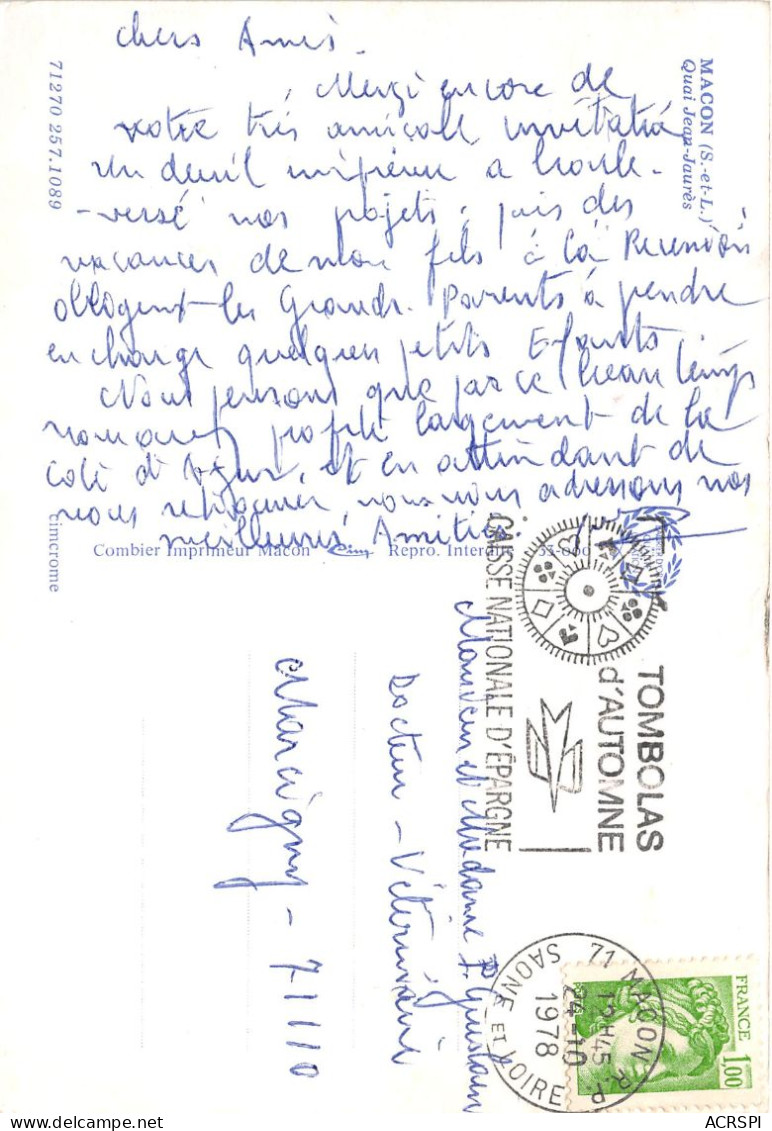 chers Amis.
Merci encore de
votre très amicale invitation
Un deuil imprévu a boule-
-versé nos projets, puis des
vacances de mon fils à la Réunion
obligent les Grands-Parents à prendre
en charge quelques petits Enfants.
Nous pensons que par ce beau temps
profité largement de la
cote d'Azur, et en attendant de
nous retrouver, nous vous adressons nos
meilleures Amitiés
MACON (S.-et-L.)
Quai Jean-Jaurès
71270 257.1089
cimcrome
Combier Imprimeur Macon Cim Repro. Interdite
CAISSE NATIONALE D'ÉPARGNE
TOMBOLAS
d'AUTOMNE
Monsieur et Madame
Docteur - Vétérinaire
Marcigny - 71110
71 MACON R.P.
12H45
24-10
1978
SAONE ET LOIRE
FRANCE
1,00
ACRSPI